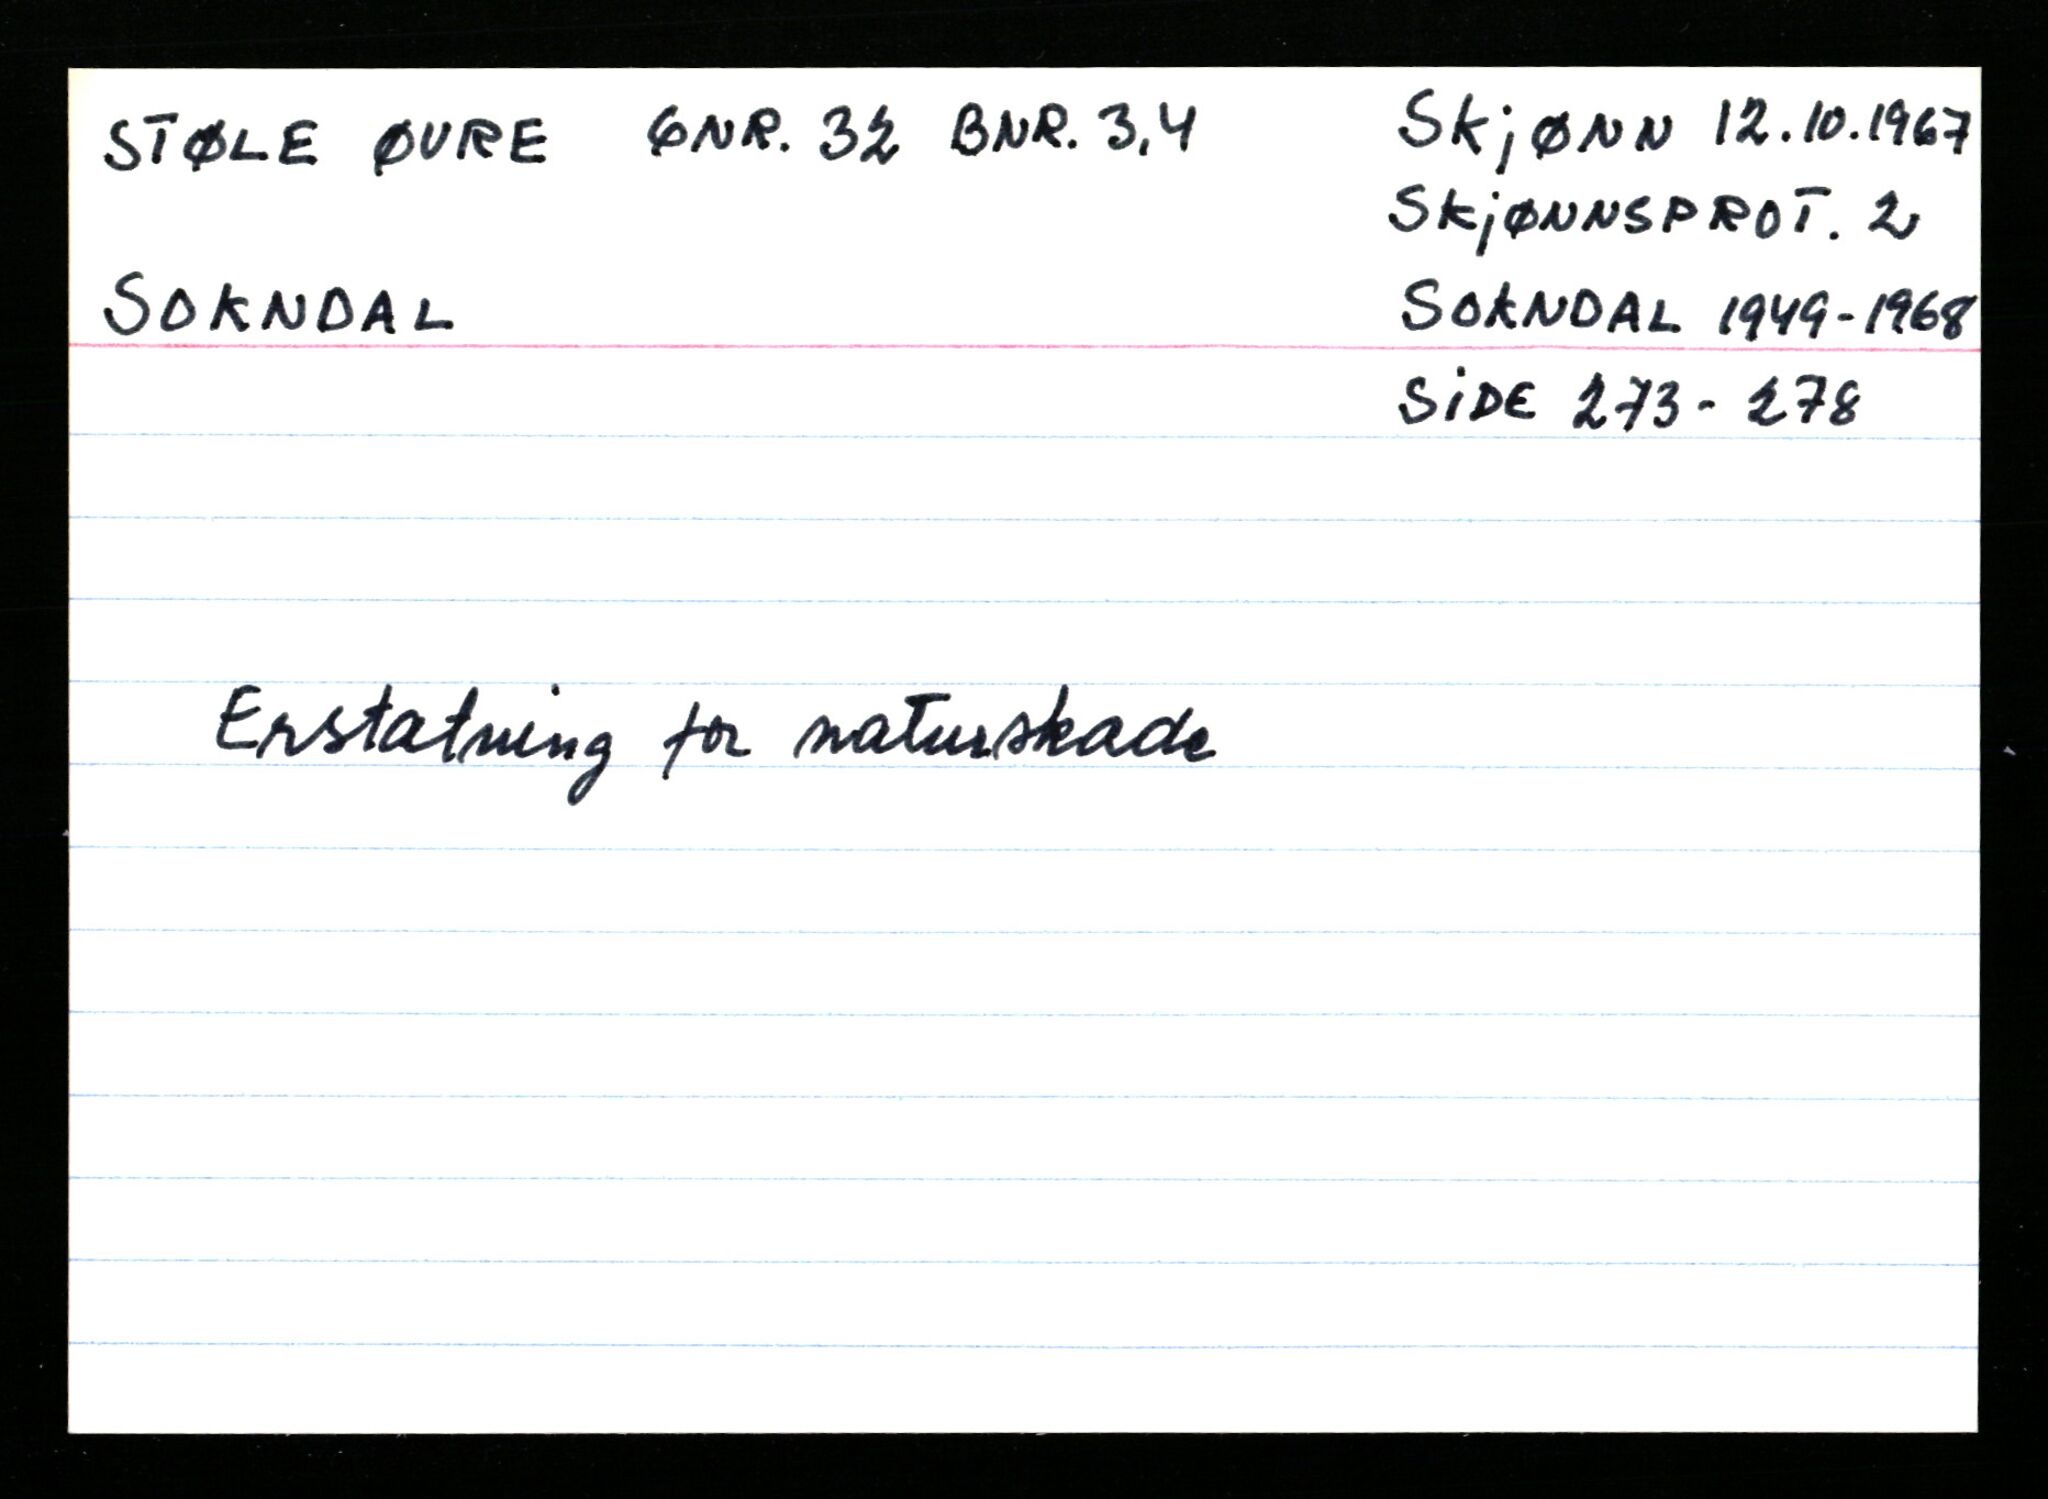 STØLE ØVRE GNR. 32 BNR. 3,4
SOKNDAL
Skjønn 12.10.1967
SkjØNNSPROT. 2
SOKNDAL 1949-1968
SIDE 273-278
Erstatning for naturskade